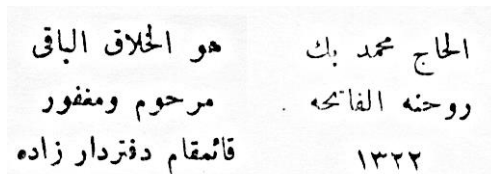 هو الخلاق الباقى
مرحوم ومغفور
قائمقام دفتردار زاده
الحاج محمد بك
روحنه الفاتحه .
١٣٢٢